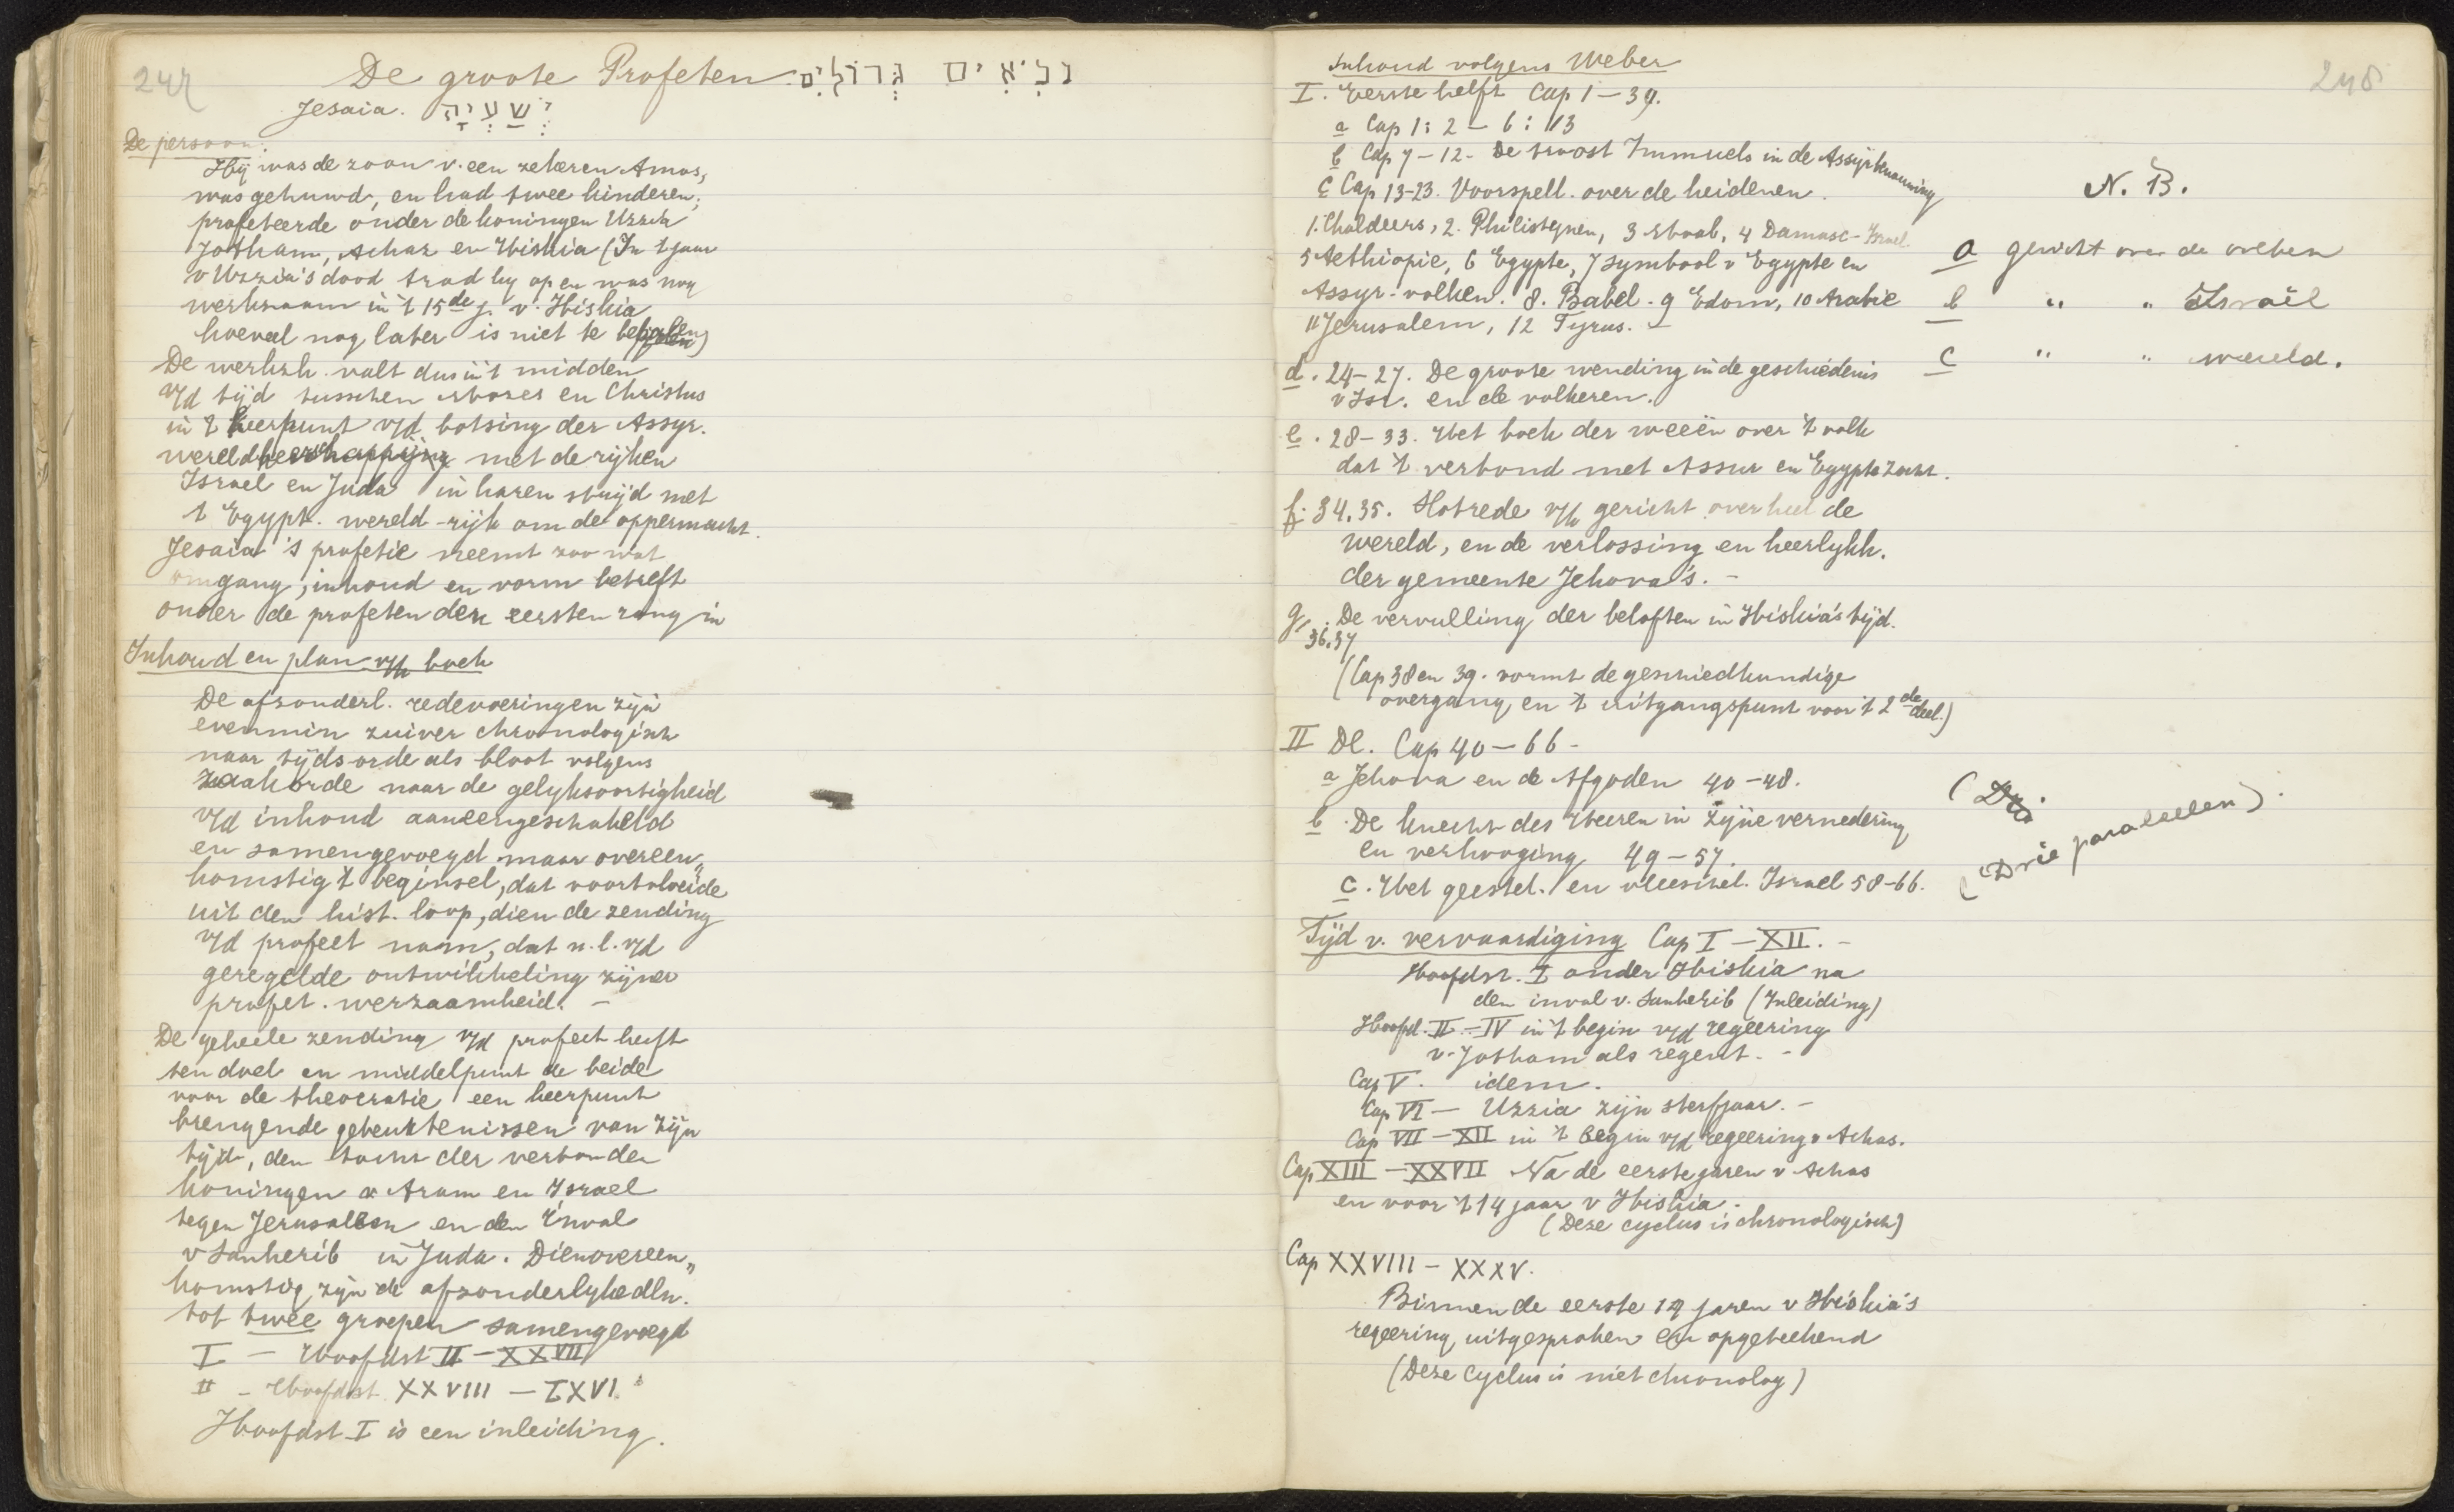 247
De groote Profeten נְבִיאִים גְּדוֹלִים.
Jesaia. יְשַׁעְיָה
De persoon.
Hij was de zoon v. een zekeren Amos,
was gehuwd, en had twee kinderen;
profeteerde onder de koningen Uzzia
Jotham, Achaz en Hiskia (In 't jaar
v Uzzia's dood trad hij op en was nog
werkzaam in 't 15de j. v. Hiskia
hoeveel nog later is niet te bepalen)
De werkzh. valt dus in 't midden
v/d tijd tusschen Mozes en Christus
in 't keerpunt v/d botsing der Assyr.
wereldheerschappijing met de rijken
Israel en Juda in haren strijd met
't Egypt. wereld-rijk om de oppermacht.
Jesaia's profetie neemt zoo wat
omgang, inhoud en vorm betreft
onder de profeten den eersten rang in
Inhoud en plan v/h boek
De afzonderl. redevoeringen zijn
evenmin zuiver chronologisch
naar tijds-orde als bloot volgens
zaakorde naar de gelijksoortigheid
v/d inhoud aaneengeschakeld
en samengevoegd maar overeen„
komstig 't beginsel, dat voortvloeide
uit den hist. loop, dien de zending
v/d profeet nam, dat n.l. v/d
geregelde ontwikkeling zijner
profet. werzaamheid. –
De geheele zending v/d profeet heeft
ten doel en middelpunt de beide
voor de theocratie een keerpunt
brengende gebeurtenissen van zijn
tijd, den tocht der verbonden
koningen v Aram en Israel
tegen Jerusalem en den inval
v Sanherib in Juda. Dienovereen„
komstig zijn de afzonderlijke dln.
tot twee groepen samengevoegd
I – Hoofdst II – XXVII
II – Hoofdst. XXVIII – LXVI.
Hoofdst I is een inleiding.
248
Inhoud volgens Weber
I. Eerste helft Cap 1 – 39.
a Cap 1: 2 – 6: 13
b Cap 7–12. De troost Immuels in de Assyrbenauwing
c Cap 13-23. Voorspell. over de heidenen.
1. Chaldeers, 2. Philistynen, 3 Moab, 4 Damasc-Israel
5 Aethiopie, 6 Egypte, 7 symbool v Egypte en
Assyr-volken. 8. Babel. 9 Edom, 10 Arabie
11 Jerusalem, 12 Tyrus. –
d. 24–27. De groote wending in de geschiedenis
v Isr. en de volkeren.
e. 28–33. Het boek der weeën over 't volk
dat 't verbond met Assur en Egypte zocht.
f. 34.35. Slotrede v/h gericht over heel de
wereld, en de verlossing en heerlijkh.
der gemeente Jehova's. –
g. De vervulling der beloften in Hiskia's tijd.
36.37
(Cap 38 en 39. vormt de geschiedkundige
overgang en 't uitgangspunt voor 't 2de deel.)
II Dl. Cap 40 – 66 –
a Jehova en de Afgoden 40–48.
b. De knecht des Heeren in zijne vernedering
en verhooging 49–57.
c. Het geestel. en vleeschel. Israel 58–66.
N. B.
a gericht over de volken
b " " Israël
c " " wereld.
(Dri
(Drie paralellen).
Tijd v. vervaardiging Cap I – XII. –
Hoofdst. I onder Hiskia na
den inval v. Sanherib (Inleiding)
Hoofd. II – IV in 't begin v/d regeering
v. Jotham als regent. –
Cap V. idem.
Cap VI – Uzzia zijn sterfjaar. –
Cap VII – XII in 't begin v/d regeering v Achas.
Cap XIII – XXVII Na de eerste jaren v Achas
en voor 't 14 jaar v Hiskia.
(Deze cyclus is chronologisch)
Cap XXVIII – XXXV.
Binnen de eerste 14 jaren v Hiskia's
regeering uitgesproken en opgeteekend
(Deze cyclus is niet chronolog)